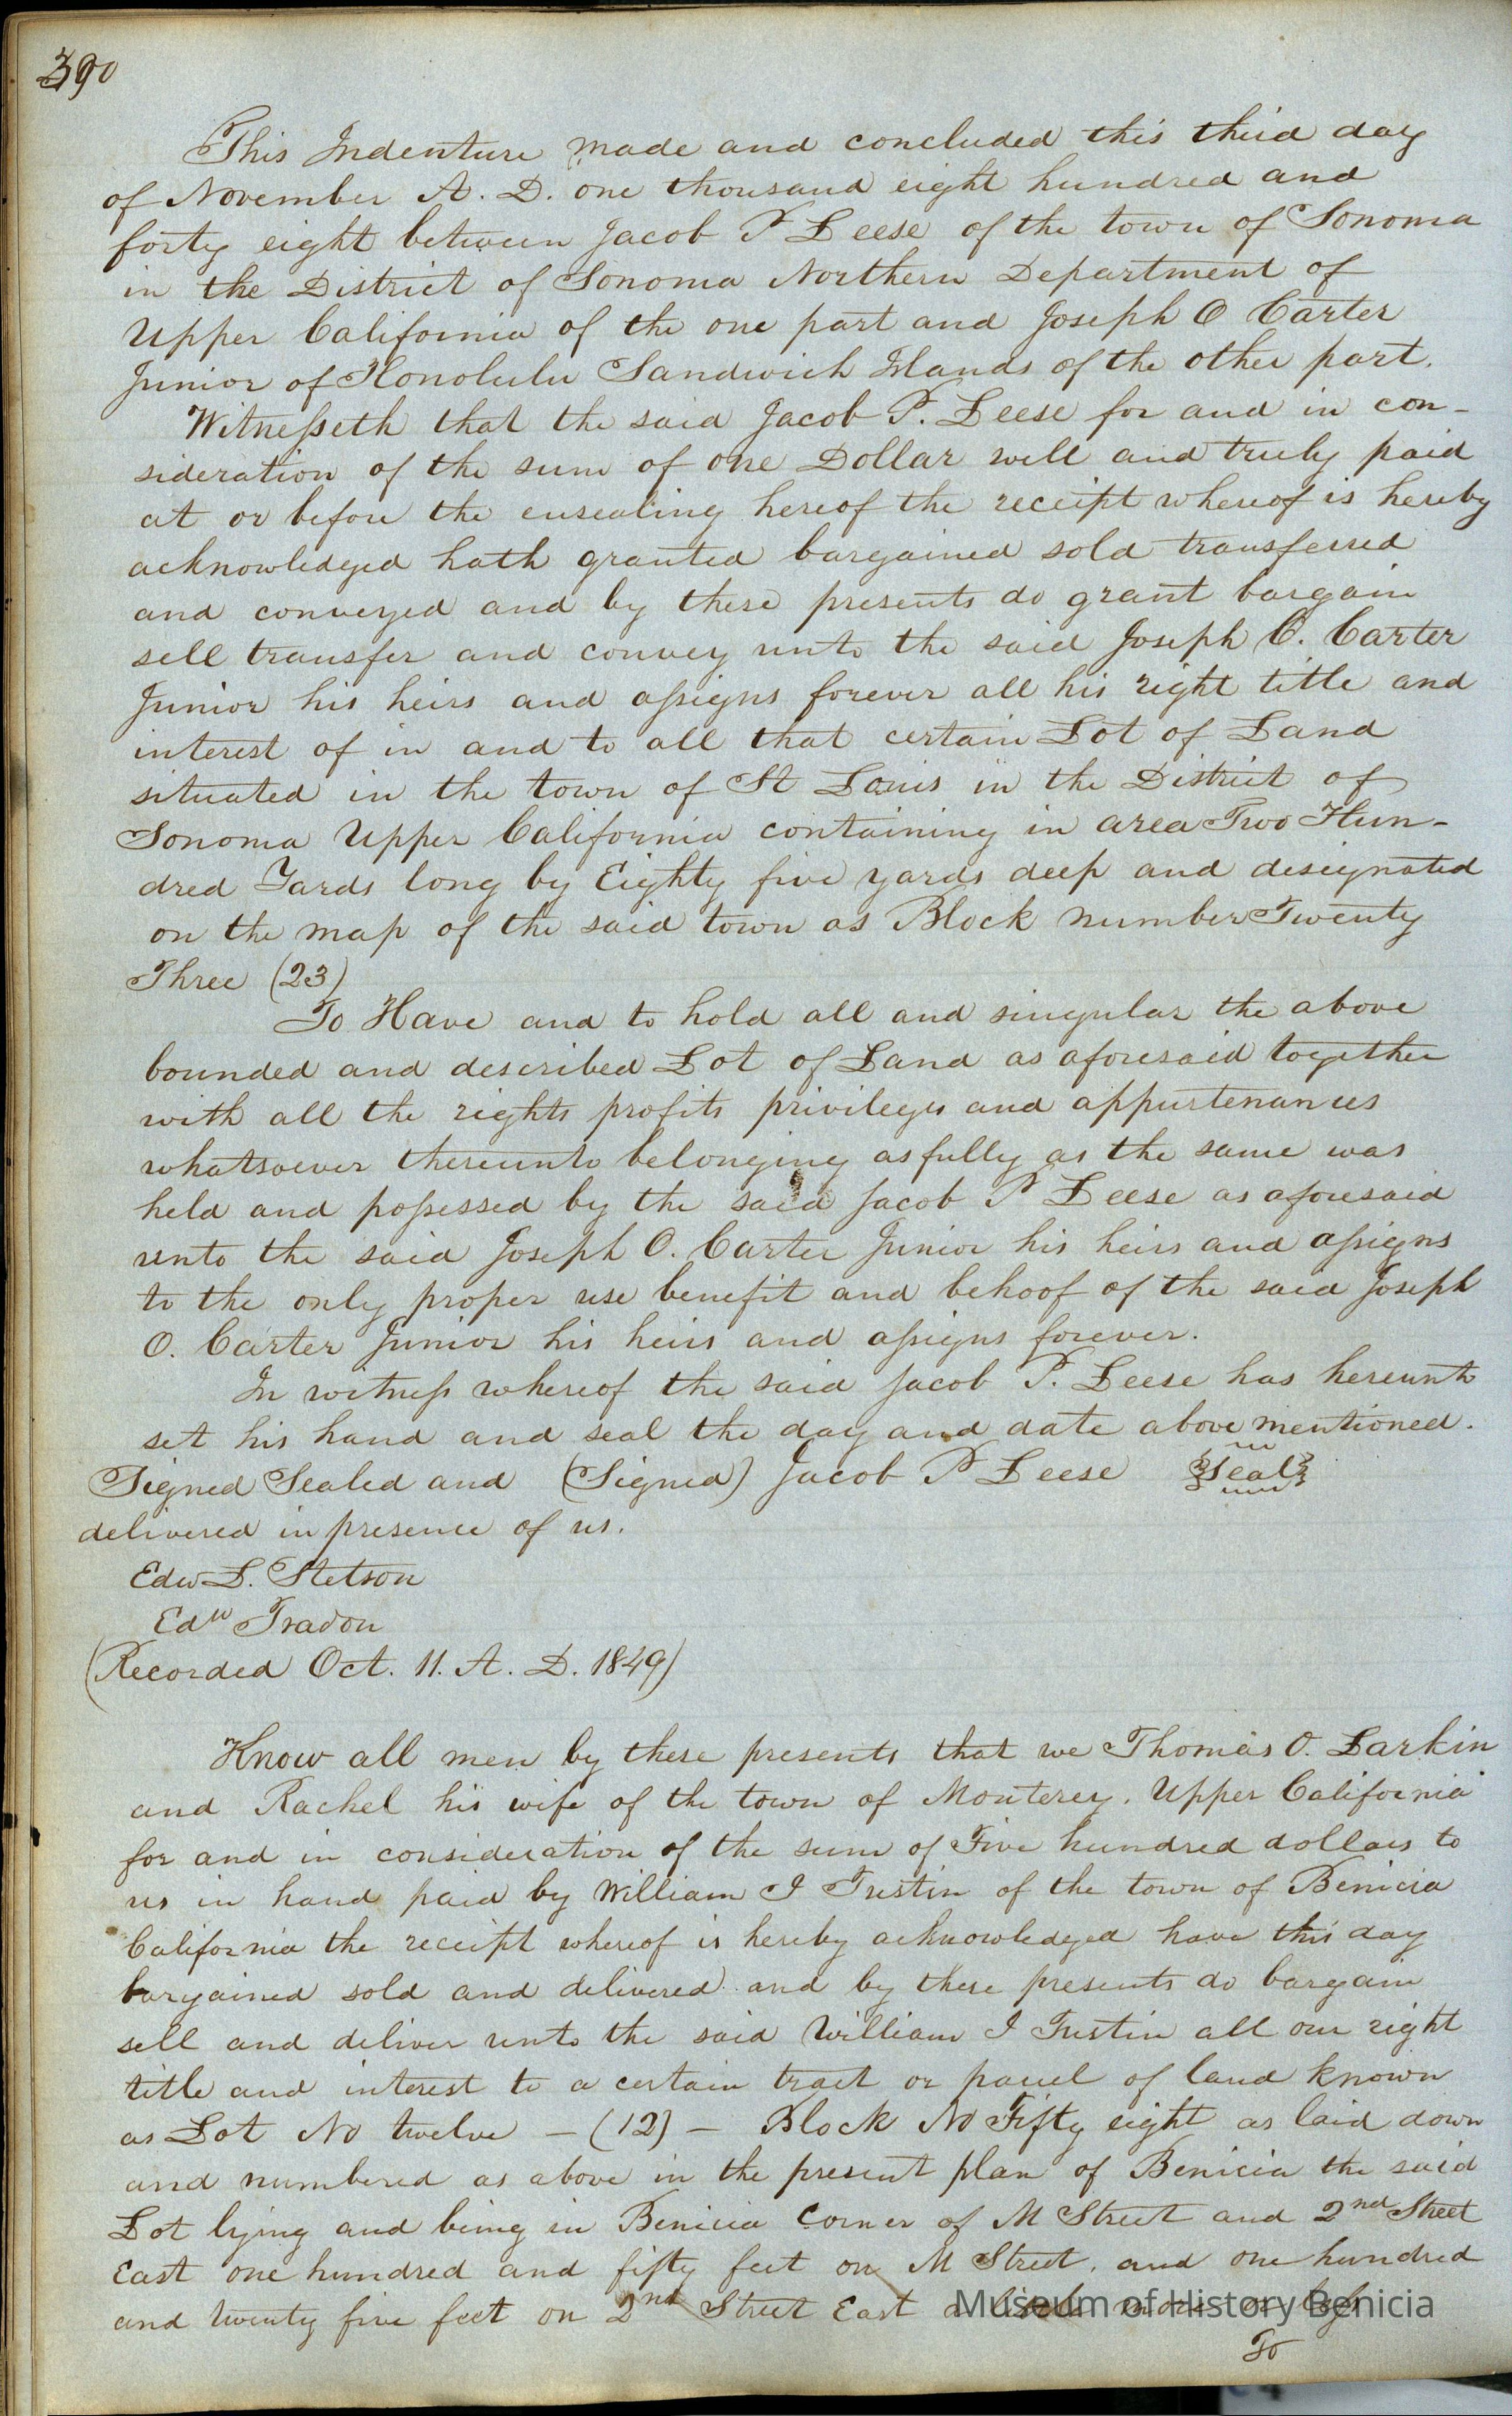 390
This Indenture made and concluded this third day
of November A. D. one thousand eight hundred and
forty eight between Jacob P Leese of the town of Sonoma
in the District of Sonoma Northern Department of
Upper California of the one part and Joseph O Carter
Junior of Honolulu Sandwich Islands of the other part.
Witneſseth that the said Jacob P. Leese for and in con-
sideration of the sum of one Dollar well and truly paid
at or before the ensealing hereof the receipt whereof is hereby
acknowledged hath granted bargained sold transferred
and conveyed and by these presents do grant bargain
sell transfer and convey unto the said Joseph O. Carter
Junior his heirs and aſsigns forever all his right title and
interest of in and to all that certain Lot of Land
situated in the town of St Louis in the District of
Sonoma Upper California containing in area Two Hun-
dred Yards long by Eighty five yards deep and designated
on the map of the said town as Block number Twenty
Three (23)
To Have and to hold all and singular the above
bounded and described Lot of Land as aforesaid together
with all the rights profits privileges and appurtenances
whatsoever thereunto belonging as fully as the same was
held and poſsessed by the said Jacob P Leese as aforesaid
unto the said Joseph O. Carter Junior his heirs and aſsigns
to the only proper use benefit and behoof of the said Joseph
O. Carter Junior his heirs and aſsigns forever.
In witneſs whereof the said Jacob P. Leese has hereunto
set his hand and seal the day and date above mentioned.
Signed Sealed and (Signed) Jacob P Leese Seal
delivered in presence of us.
Edw L. Stetson
Edw Tradon
(Recorded Oct. 11. A. D. 1849)
Know all men by these presents that we Thomas O. Larkin
and Rachel his wife of the town of Monterey. Upper California
for and in consideration of the sum of Five hundred dollars to
us in hand paid by William I Tustin of the town of Benicia
California the receipt whereof is hereby acknowledged have this day
bargained sold and delivered and by these presents do bargain
sell and deliver unto the said William I Tustin all our right
title and interest to a certain tract or parcel of land known
as Lot No twelve - (12) - Block No Fifty eight as laid down
and numbered as above in the present plan of Benicia the said
Lot lying and being in Benicia Corner of M Street and 2nd Street
East one hundred and fifty feet on M Street. and one hundred
and twenty five feet on 2nd Street East
To
Museum of History Benicia